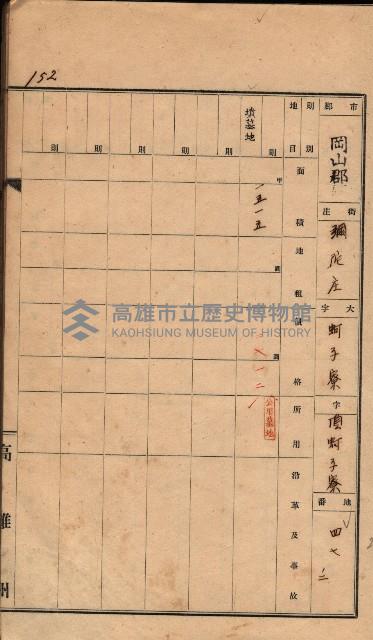 152
市郡 岡山郡
街庄 彌陀庄
大字 蚵子寮
字 頂蚵子寮
地番 四七ノ二
地目 則別
面積
地租額
格
所用沿革及事故
墳墓地
則
則
則
則
則
則
甲
一五一五
圓
圓
公用墓地
高雄市立歷史博物館
KAOHSIUNG MUSEUM OF HISTORY
高雄州